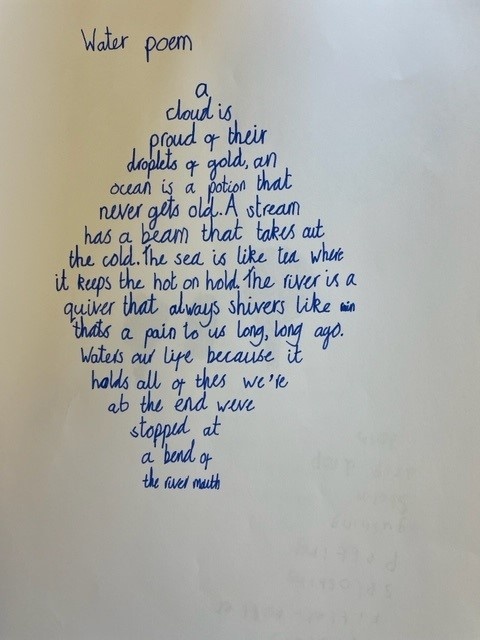 Water poem
a
cloud is
proud of their
droplets of gold, an
ocean is a potion that
never gets old. A stream
has a beam that takes out
the cold. The sea is like tea where
it keeps the hot on hold. The river is a
quiver that always shivers like rain
thats a pain to us long, long ago.
Waters our life because it
holds all of thes we're
at the end were
stopped at
a bend of
the river mouth